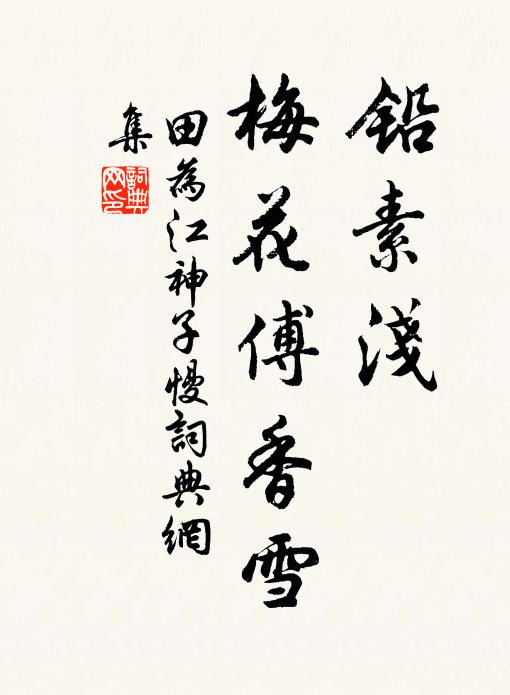 鉛素淺
梅花傅香雪
田為江神子慢詞典網
集
詞典
网印